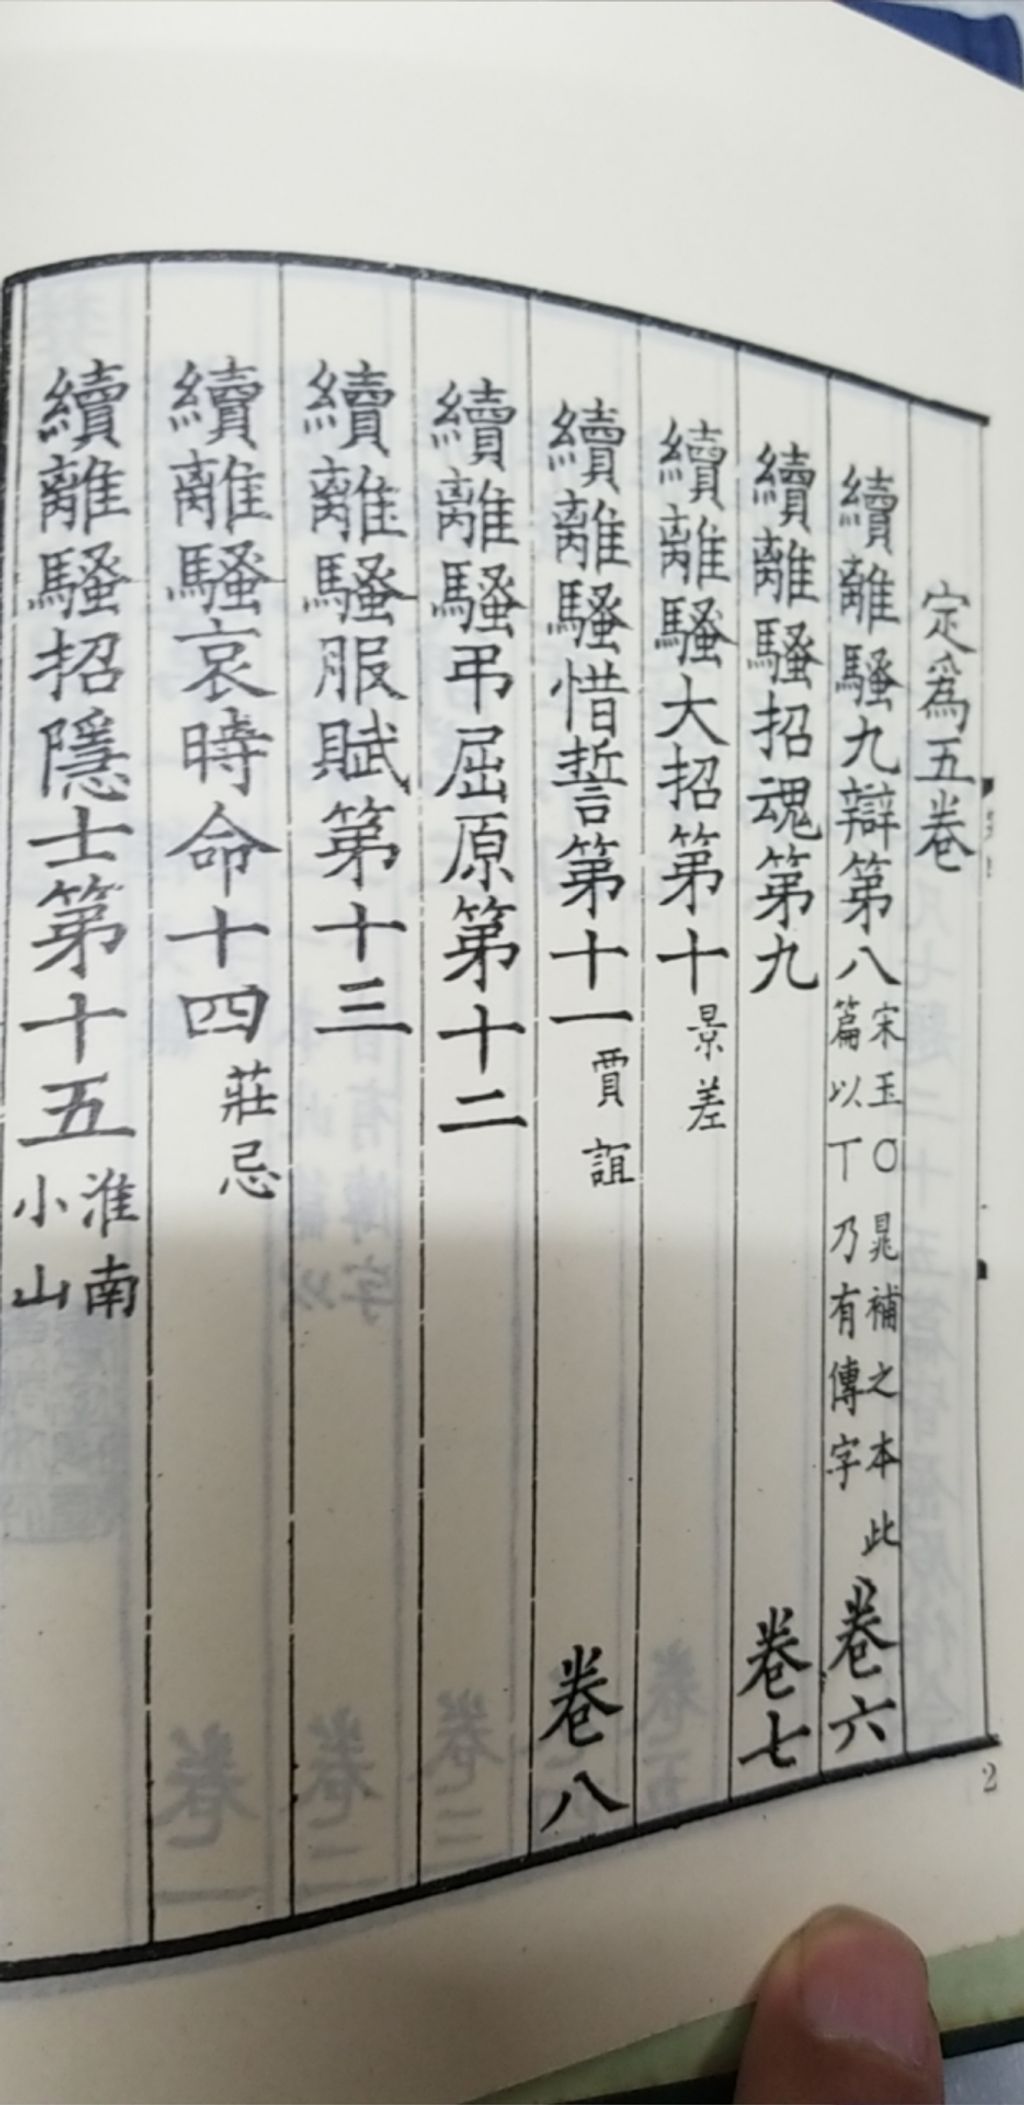 定爲五卷
續離騷九辯第八 宋玉〇晁補之本此篇以丅乃有傳字 卷六
續離騷招魂第九 卷七
續離騷大招第十 景差
續離騷惜誓第十一 賈誼 卷八
續離騷弔屈原第十二
續離騷服賦第十三
續離騷哀時命十四 莊忌
續離騷招隱士第十五 淮南小山
2